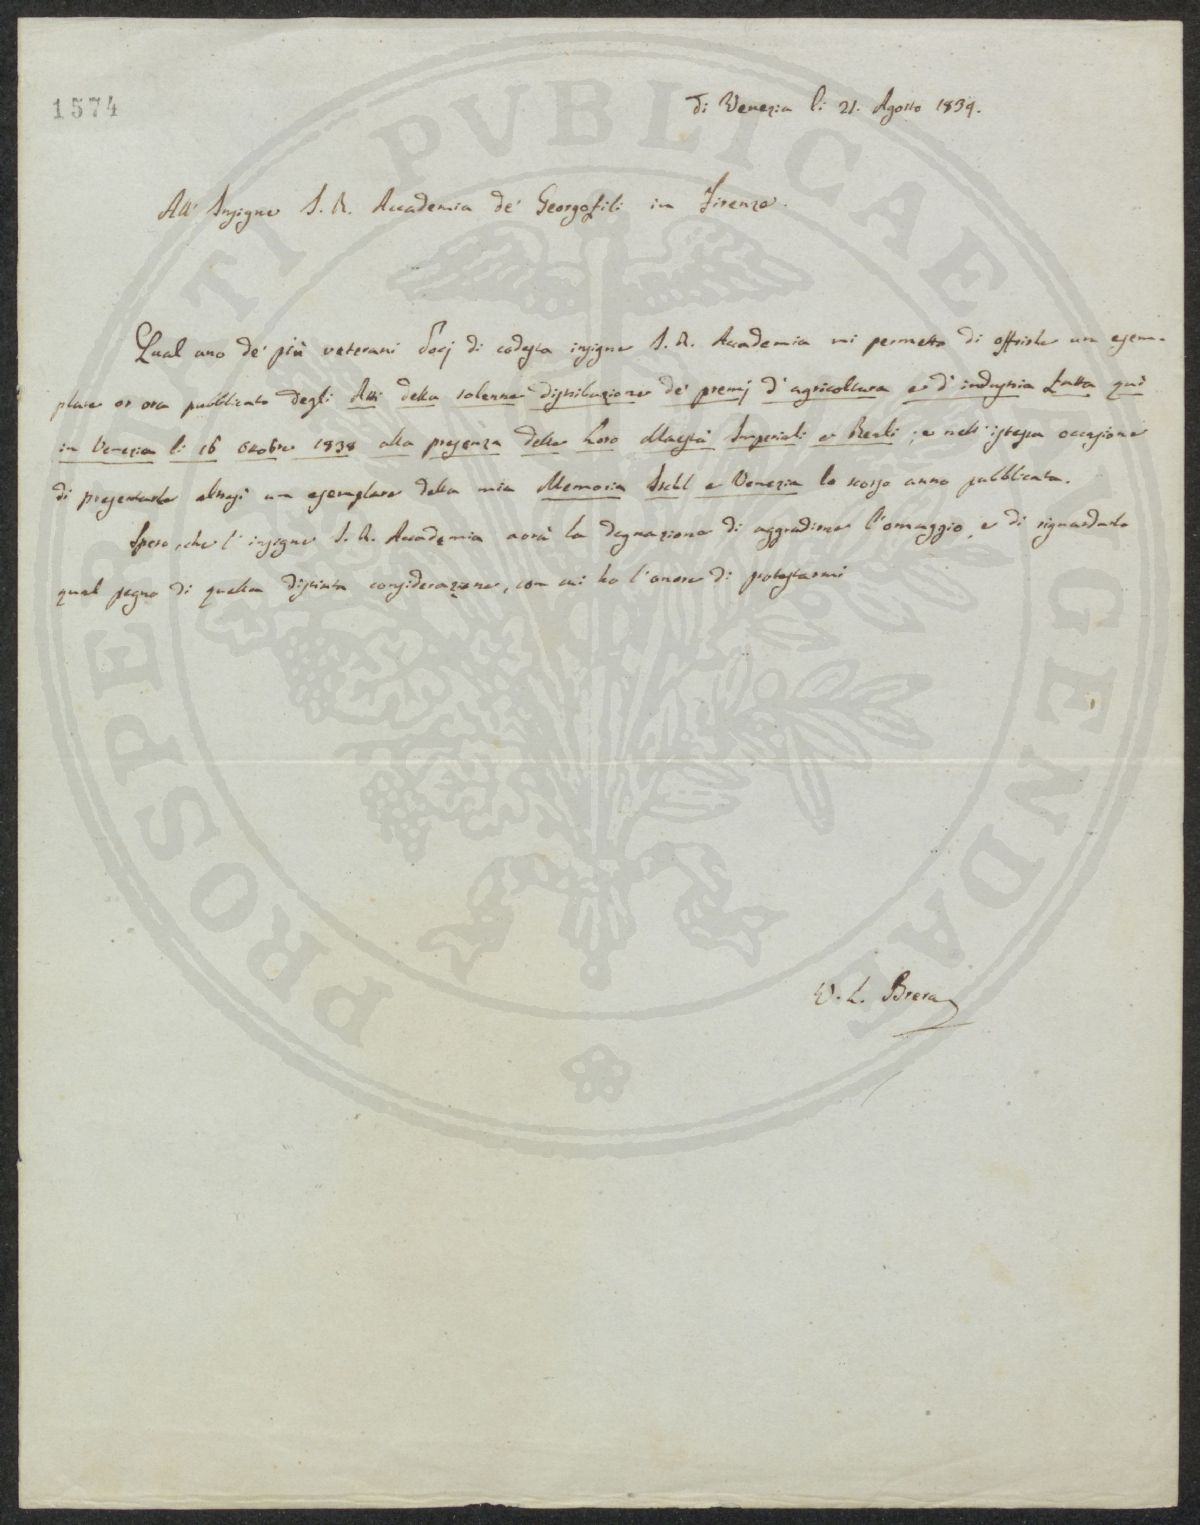 1574
di Venezia li 21. Agosto 1839.
All' Insigne I. R. Accademia de' Georgofili in Firenze.
Qual uno de' più veterani Socj di codesta insigne I. R. Accademia mi permetto di offrirle un esem-
plare or ora pubblicato degli Atti della solenne distribuzione de' premj d' agricoltura e d' industria fatta quì
in Venezia li 16 Ottobre 1838 alla presenza delle Loro Maestà Imperiali e Reali; e nell' istessa occasione
di presentarle altresì un esemplare della mia Memoria Ischl e Venezia lo scorso anno pubblicata.
Spero, che l' insigne I. R. Accademia avrà la degnazione di aggradirne l'omaggio, e di riguardarlo
qual pegno di quella distinta considerazione, con cui ho l'onore di protestarmi
V. L. Brera
PROSPERITATI PVBLICAE AVGENDAE